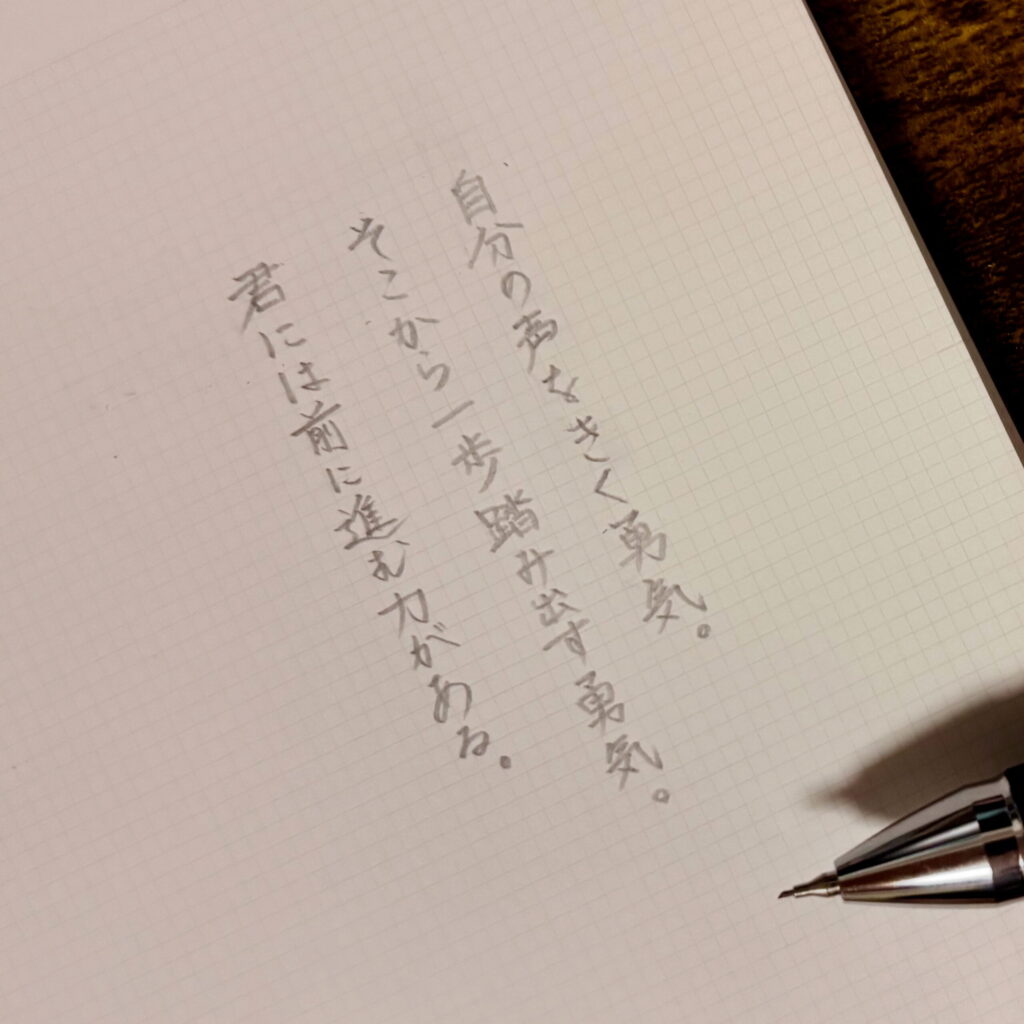 自分の声をきく勇気。
そこから一歩踏み出す勇気。
君には前に進む力がある。